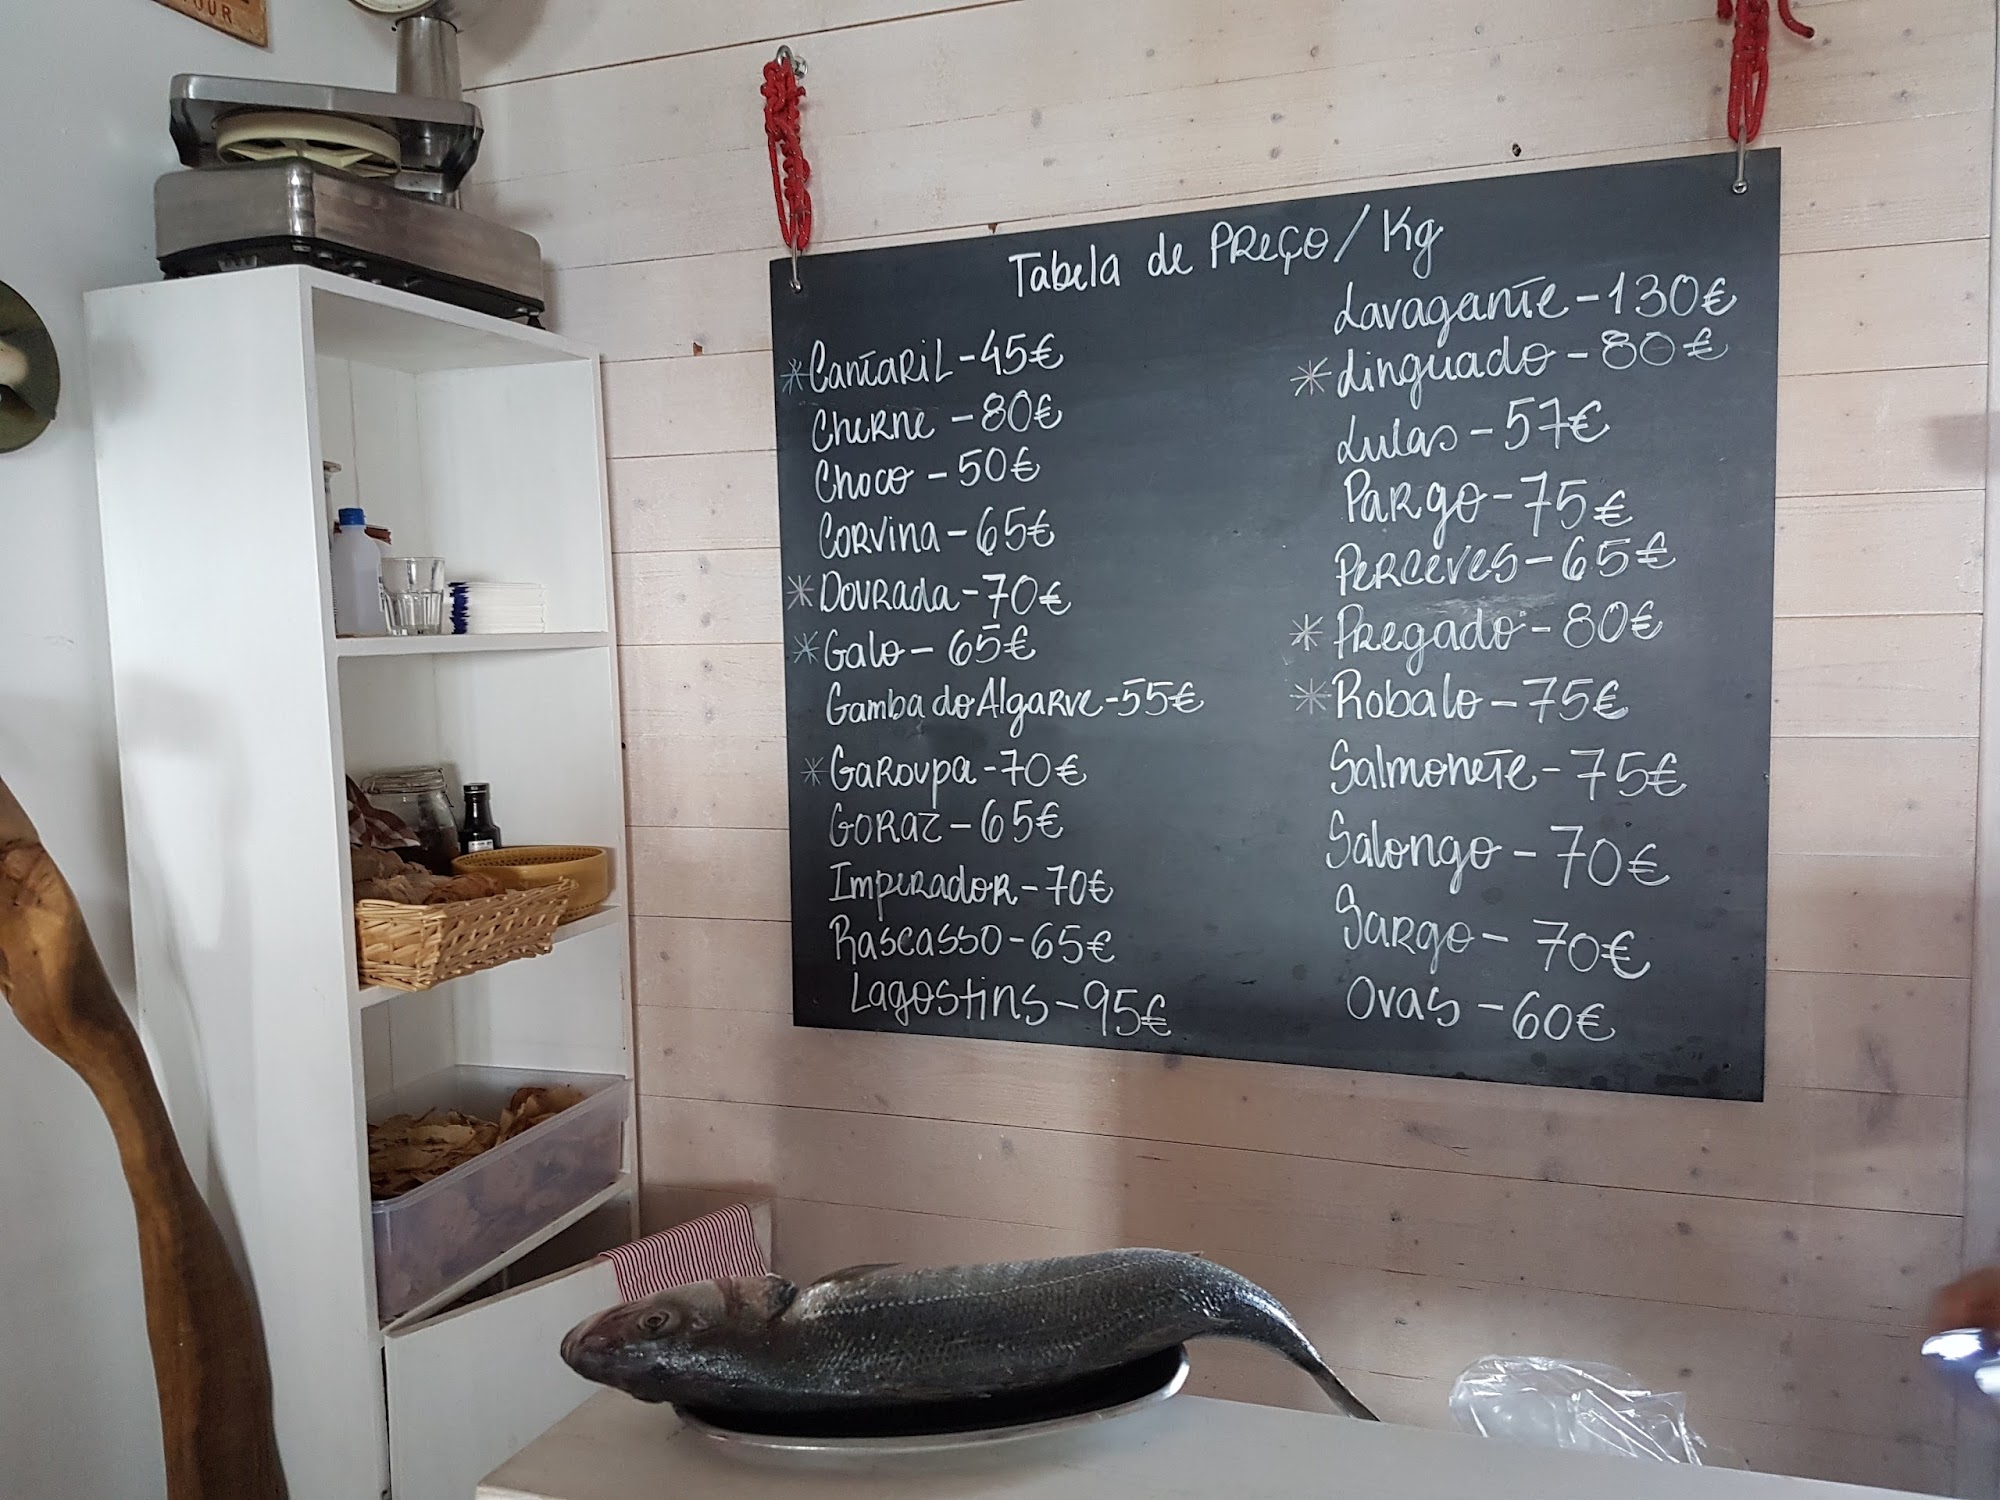 OUR
Tabela de Preço/Kg
*Cantaril - 45€
Cherne - 80€
Choco - 50€
Corvina - 65€
*Dourada - 70€
*Galo - 65€
Gamba do Algarve - 55€
*Garoupa - 70€
Goraz - 65€
Imperador - 70€
Rascasso - 65€
Lagostins - 95€
Lavagante - 130€
*Linguado - 80€
Lulas - 57€
Pargo - 75€
Perceves - 65€
*Pregado - 80€
*Robalo - 75€
Salmonete - 75€
Salongo - 70€
Sargo - 70€
Ovas - 60€